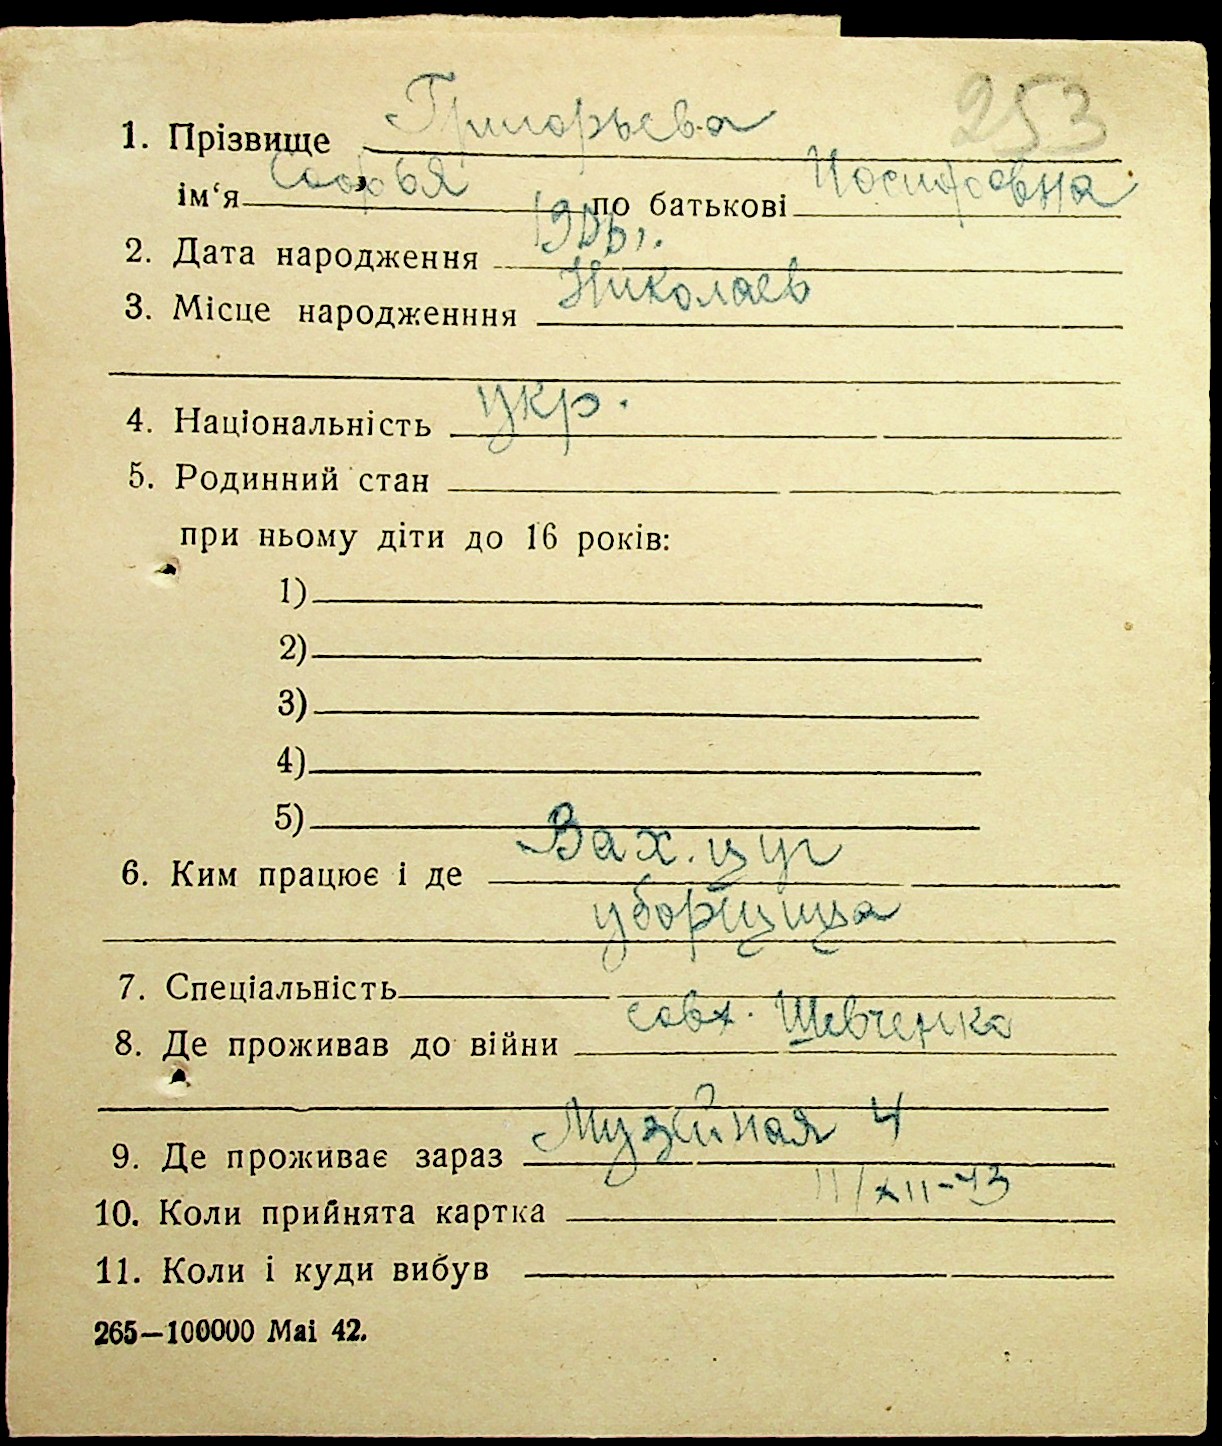 253
1. Прізвище Григорьева
ім‘я Софья по батькові Иосифовна
2. Дата народження
3. Місце народженння Николаев
4. Національність укр.
5. Родинний стан
при ньому діти до 16 років:
1)
2)
3)
4)
5)
6. Ким працює і де Вах.
уборщица
7. Спеціальність
8. Де проживав до війни совх. Шевченко
9. Де проживає зараз Музейная 4
10. Коли прийнята картка 11/XII-43
11. Коли і куди вибув
265—100000 Mai 42.